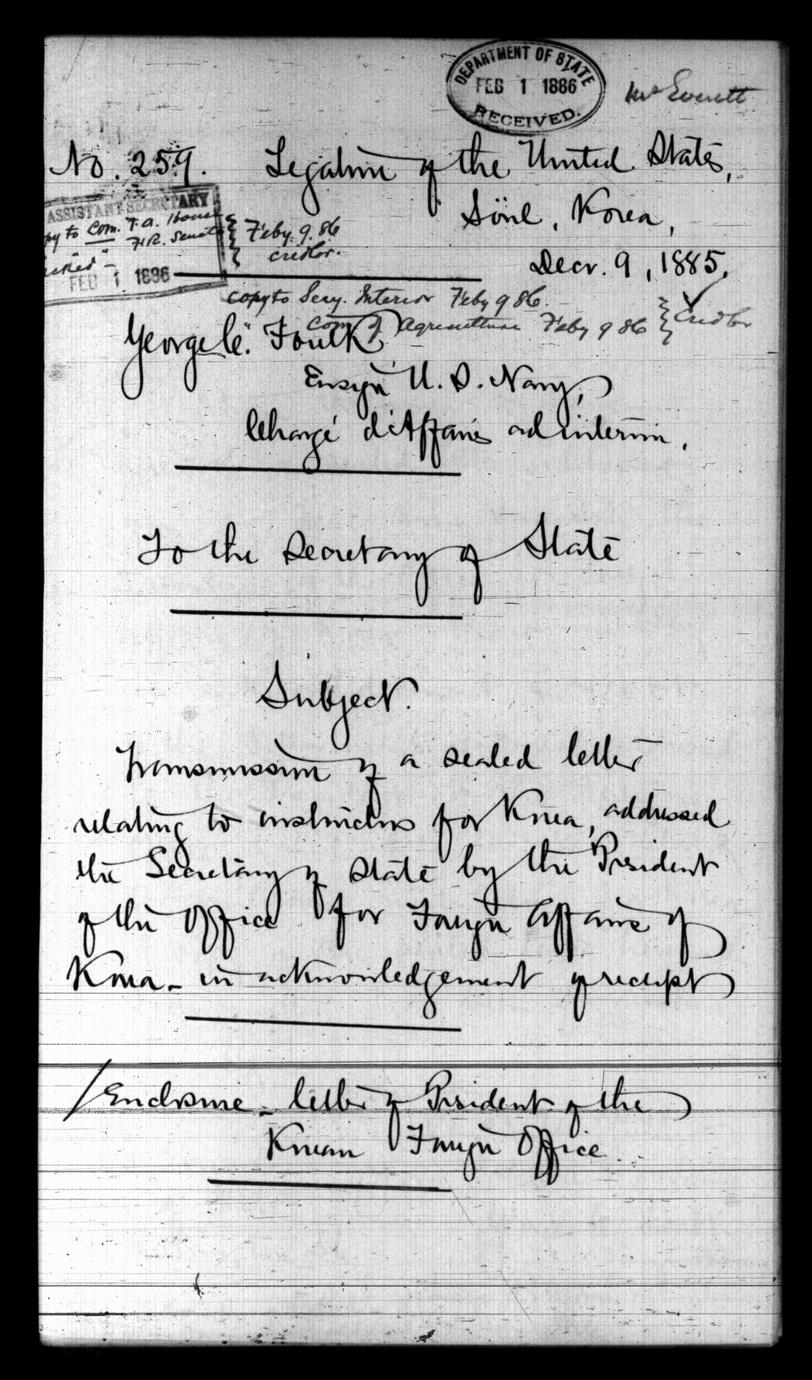 DEPARTMENT OF STATE
FEB 1 1886
RECEIVED.
Mr Everett
No. 259. Legation of the United States,
Söul, Korea,
Decr. 9, 1885.
ASSISTANT SECRETARY
copy to Com. F.A. House
" " F.R. Senate
Feby. 9. 86
FEB 1 1886
copy to Secy. Interior Feby 9 86.
Com. of Agriculture Feby 9 86
George C. Foulk
Ensign U. S. Navy,
Chargé d'Affaires ad interim.
To the Secretary of State
Subject.
Transmission of a sealed letter
relating to instructors for Korea, addressed
the Secretary of State by the President
of the Office for Foreign Affairs of
Korea - in acknowledgement of receipt
1 Enclosure - letter of President of the
Korean Foreign Office